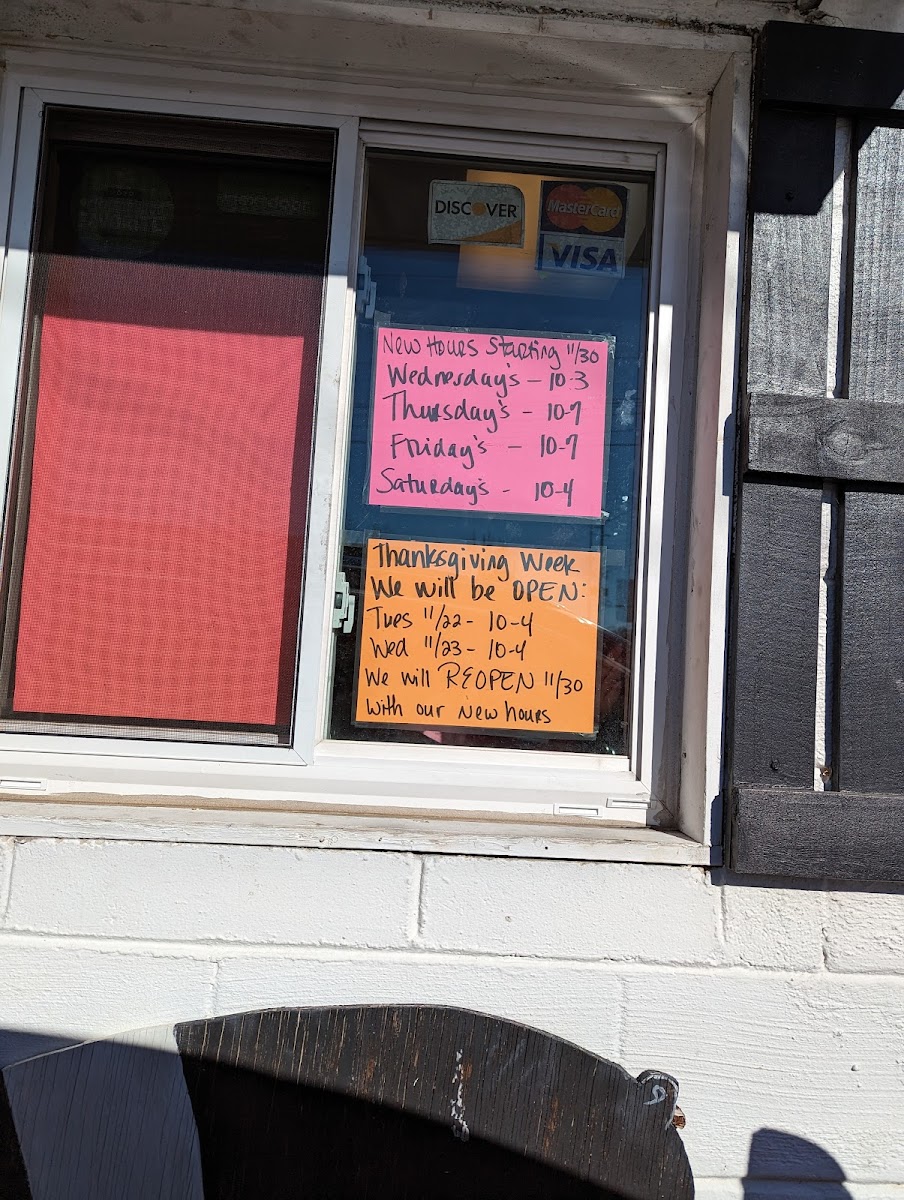 DISCOVER
MasterCard
VISA
New Hours Starting 11/30
Wednesday's - 10-3
Thursday's - 10-7
Friday's - 10-7
Saturday's - 10-4
Thanksgiving Week
We will be OPEN:
Tues 11/22 - 10-4
Wed 11/23 - 10-4
We will REOPEN 11/30
with our new hours